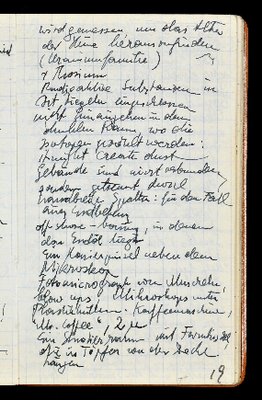 wird gemessen um das Alter
der Steine herauszufinden
(Uraniumfamilie)
+ Thorium
Radioaktive Substanzen in
mit Ziegeln eingeschlossen
nicht hineingehen in den
dunklen Raum, wo die
Isotopen gezählt werden:
it might create dust
Gebäude sind nicht verbunden
sondern getrennt durch
Spalten: für den Fall
eines Erdbebens
off shore-boring, in denen
das Erdöl liegt
ein Rasierpinsel neben dem
Mikroskop
Fotomicrograph von Muscheln,
blow ups, Mikroskope unter
Plastikhüllen. Kaffeemaschine,
"Mr. Coffee",
Ein raum mit
in Töpfen von der Decke
hängen
19